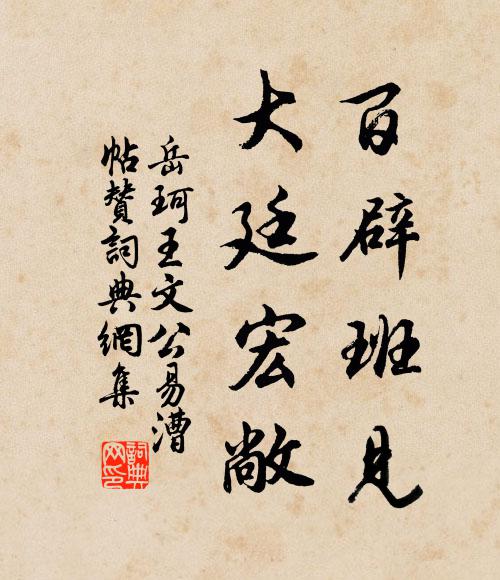 百辟班見
大廷宏敞
岳珂王文公易漕
帖贊詞典網集
詞典
网印